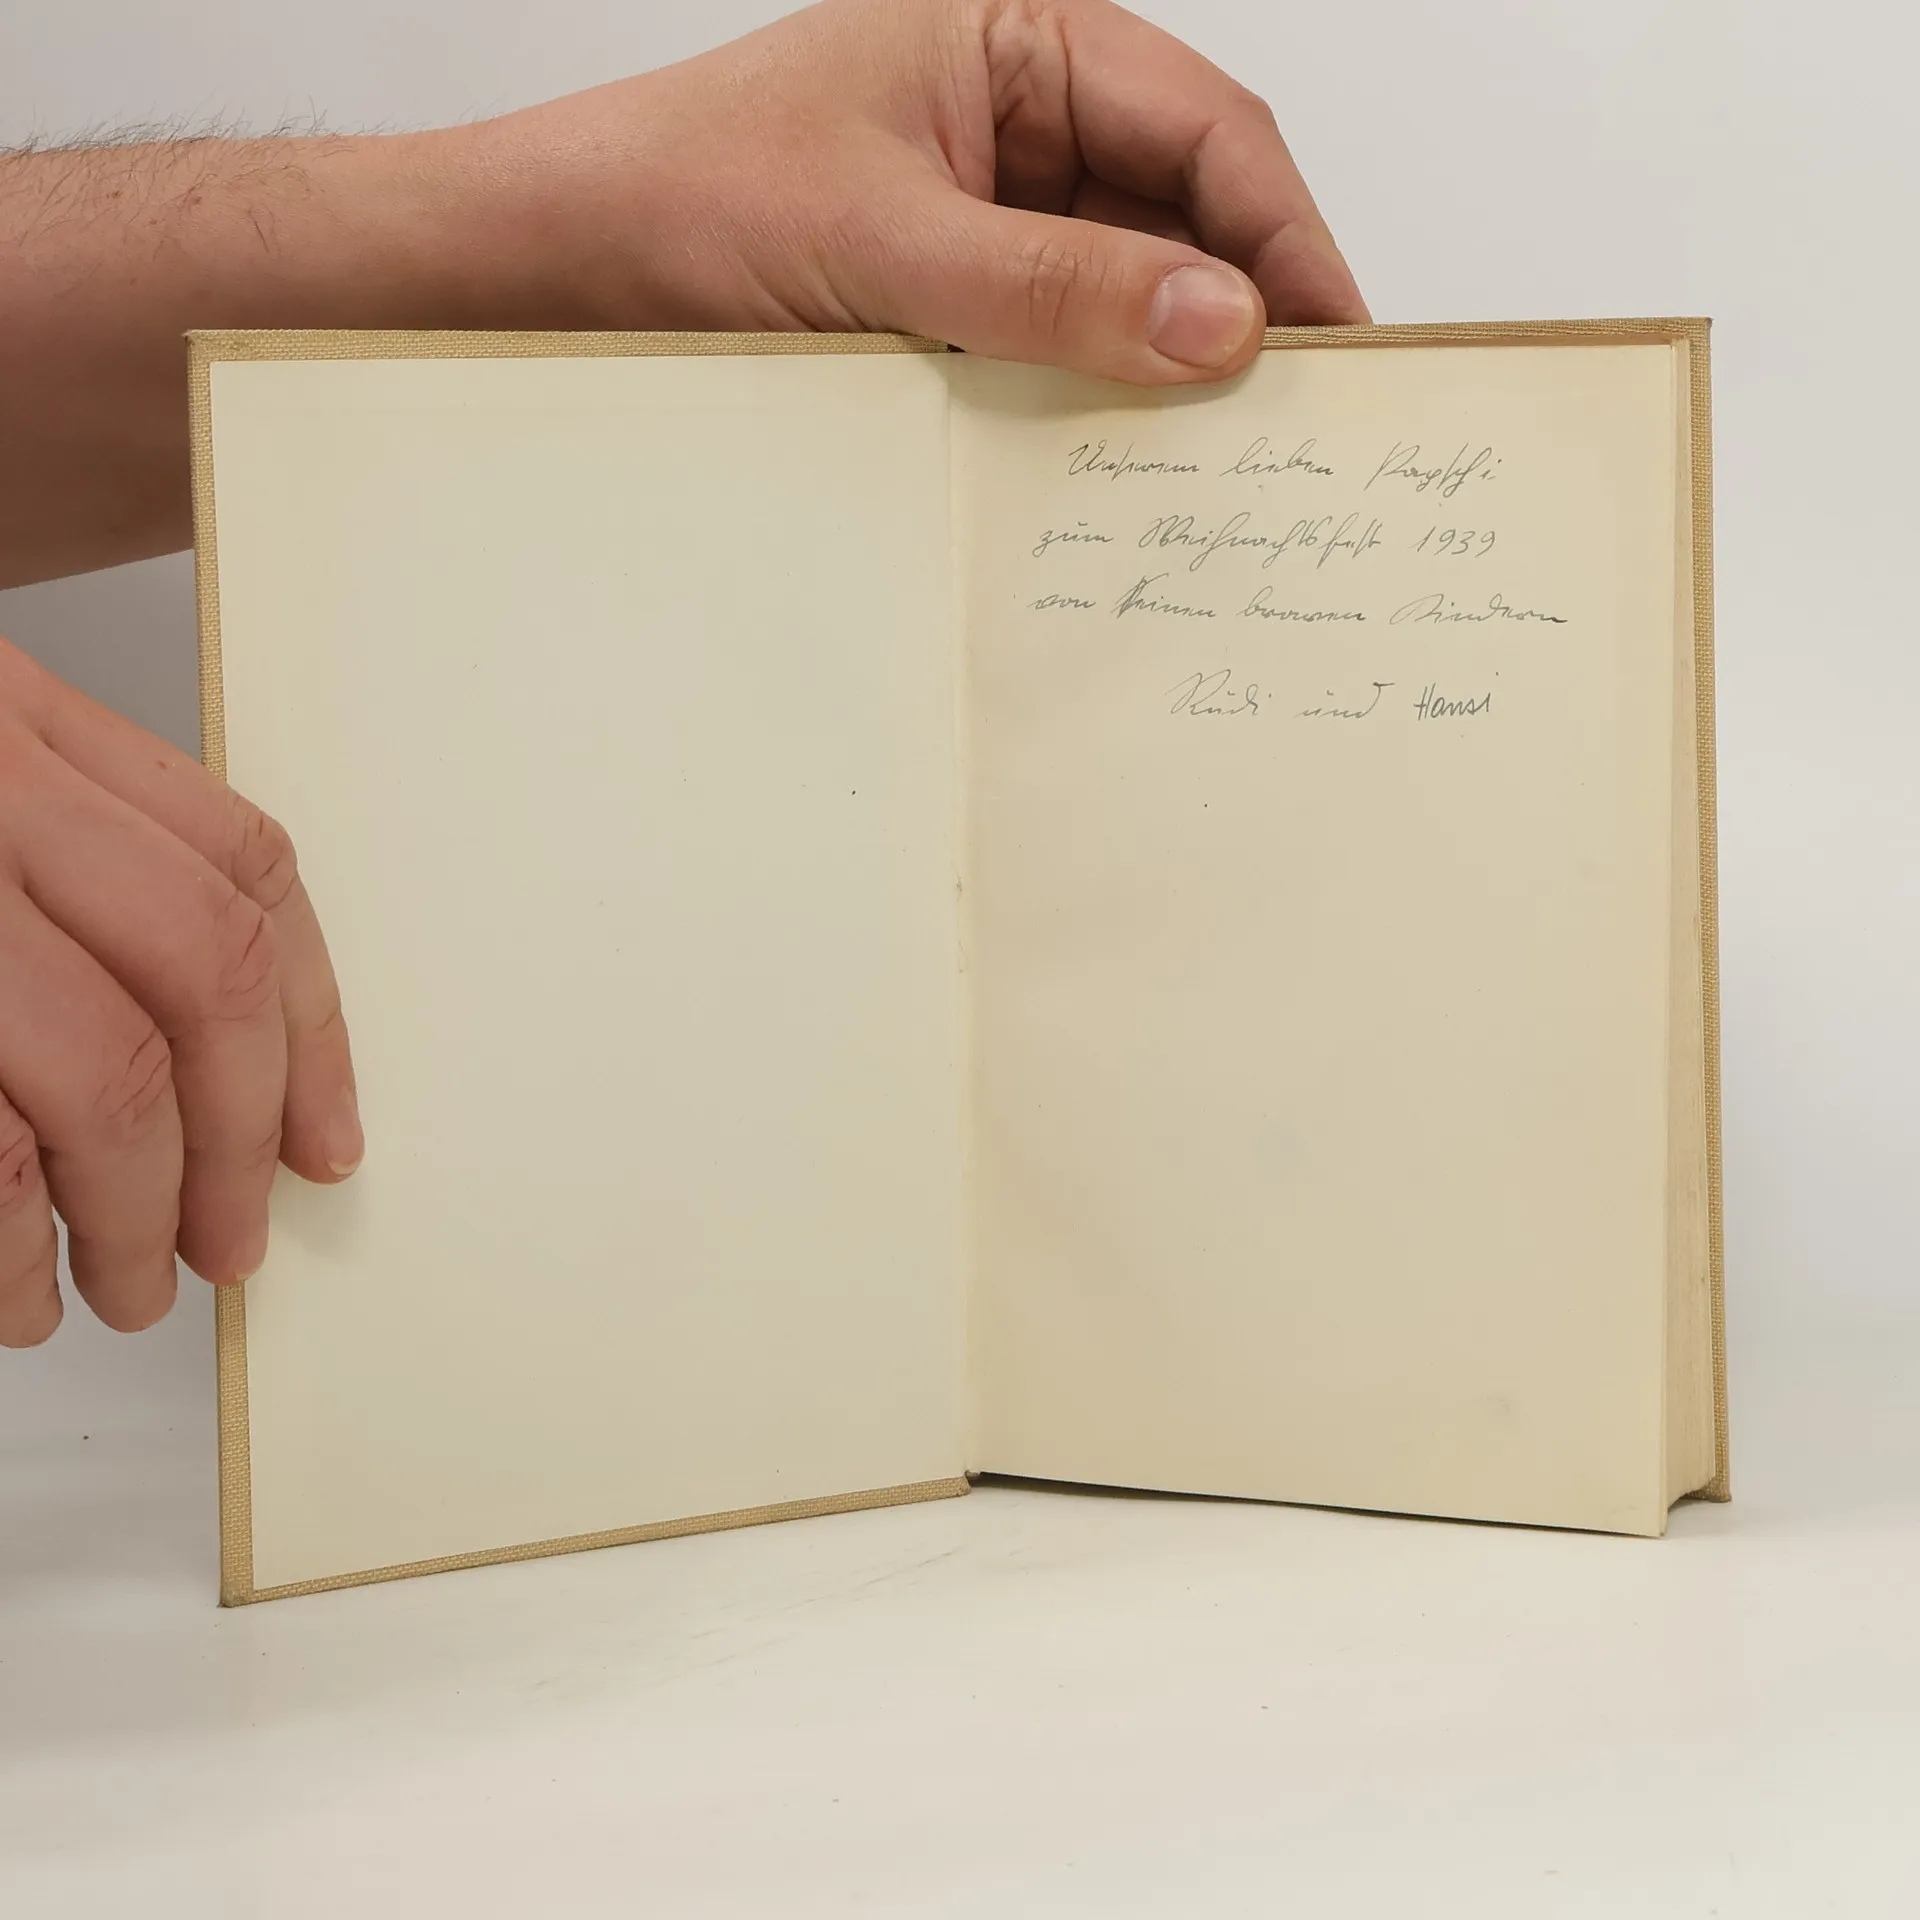 Unserem lieben Papschi
zum Weihnachtsfest 1939
von seinen braven Kindern
Rudi und Hansi